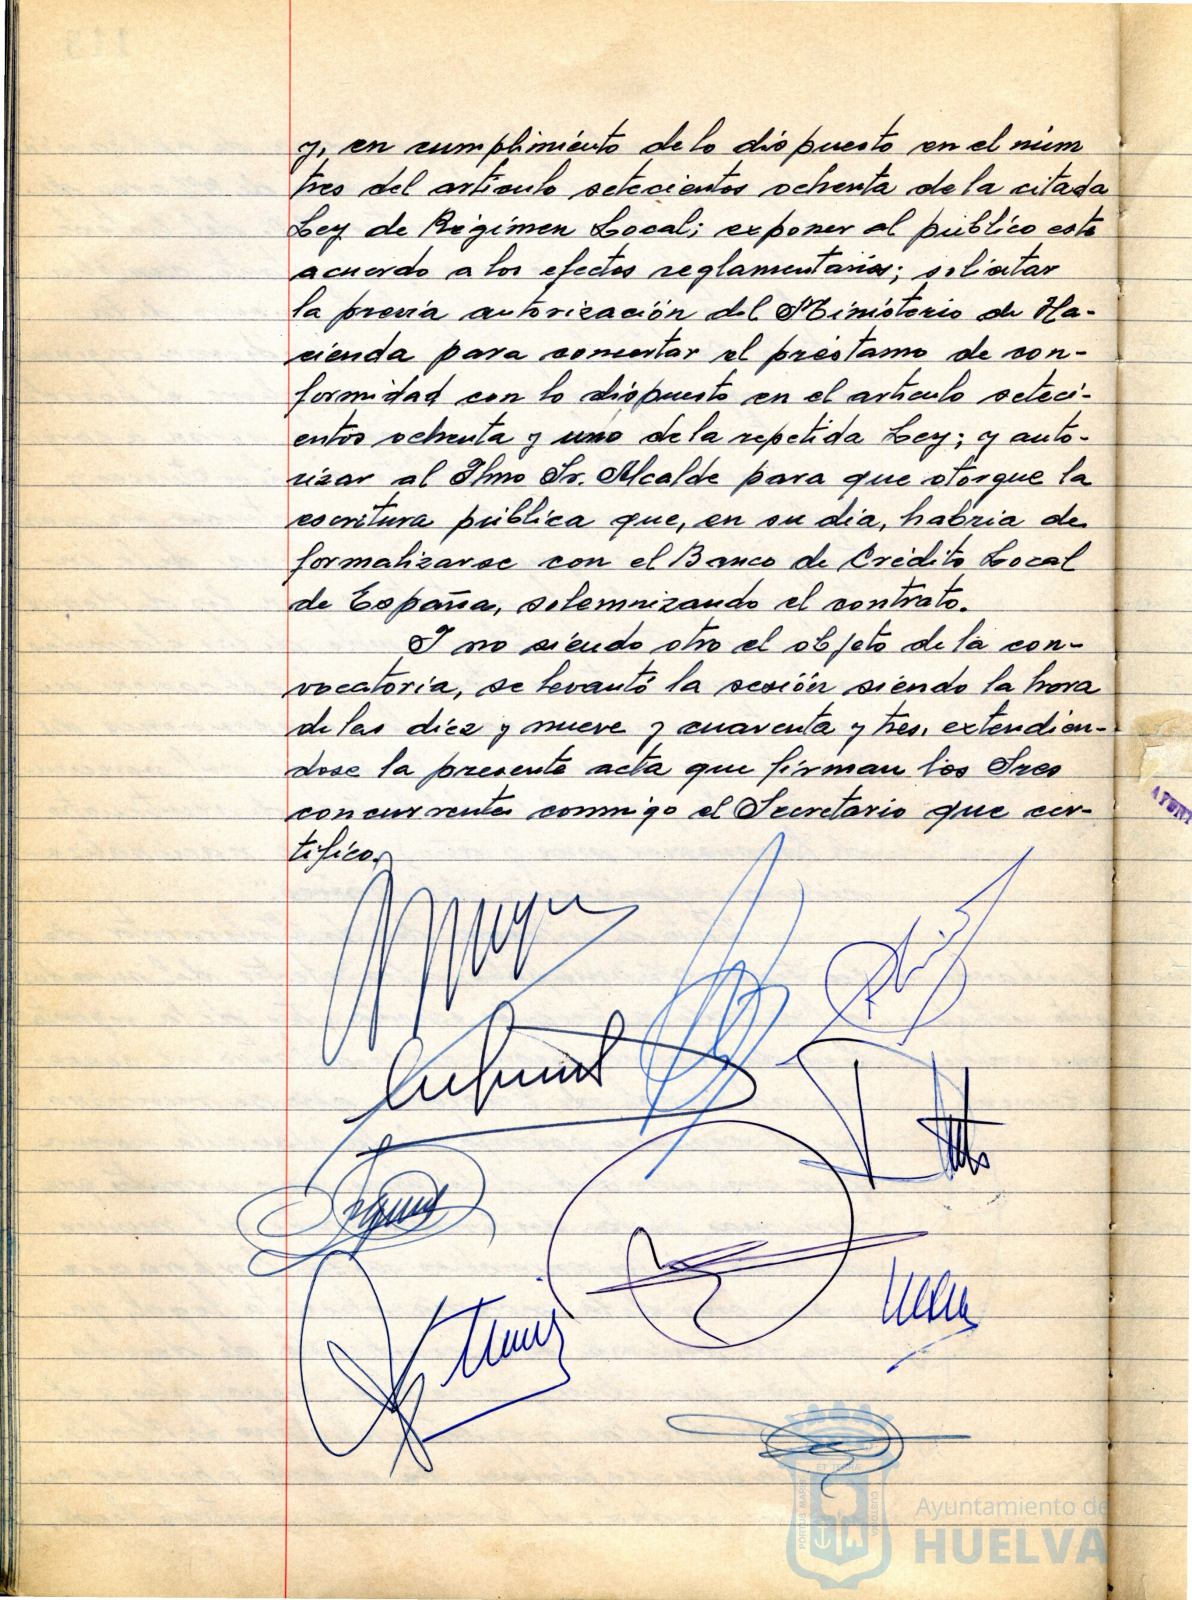 y, en cumplimiento de lo dispuesto en el núm
tres del artículo setecientos ochenta de la citada
Ley de Régimen Local; exponer al público este
acuerdo a los efectos reglamentarios; solicitar
la previa autorización del Ministerio de Ha-
cienda para concertar el préstamo de con-
formidad con lo dispuesto en el artículo seteci-
entos ochenta y uno de la repetida Ley; y auto-
rizar al Ilmo Sr. Alcalde para que otorgue la
escritura pública que, en su dia, habria de
formalizarse con el Banco de Crédito Local
de España, solemnizando el contrato.
Y no siendo otro el objeto de la con-
vocatoria, se levantó la sesión siendo la hora
de las diez y nueve y cuarenta y tres, extendien-
dose la presente acta que firman los Sres
concurrentes conmigo el Secretario que cer-
tifico.
PORTUS MARIS
CUSTODIA
Ayuntamiento de
HUELVA